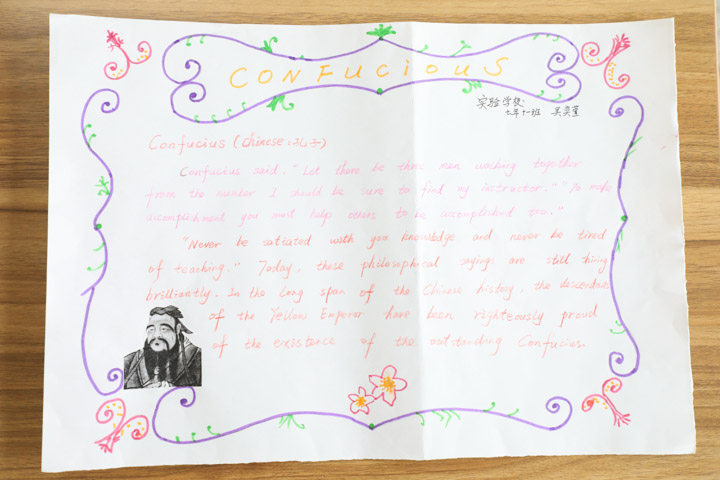 CONFUCiOUS
实验学校
七年十一班 吴奕萱
Confucius (Chinese:孔子)
Confucius said, "Let there be three men walking together
from the manner I should be sure to find my instructor." "To make
accomplishment you must help others to be accomplished too."
"Never be satiated with you knowledge and never be tired
of teaching." Today, these philosophical sayings are still
brilliantly. In the long span of the Chinese history, the descendants
of the Yellow Emperor have been righteously proud
of the existence of the outstanding Confucius.